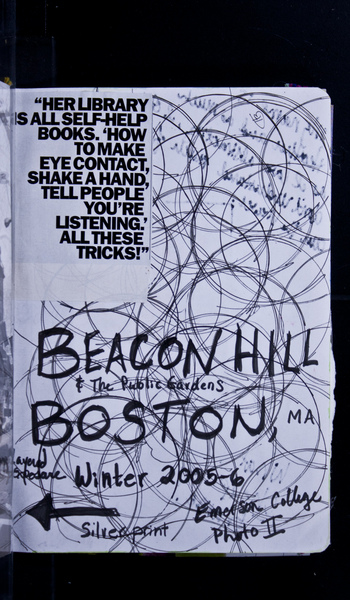 “HER LIBRARY
IS ALL SELF-HELP
BOOKS. ‘HOW
TO MAKE
EYE CONTACT,
SHAKE A HAND,
TELL PEOPLE
YOU’RE
LISTENING.’
ALL THESE
TRICKS!”
BEACON HILL
& The Public Gardens
BOSTON, MA
Winter 2005-6
Emerson College
Photo II
Silver print